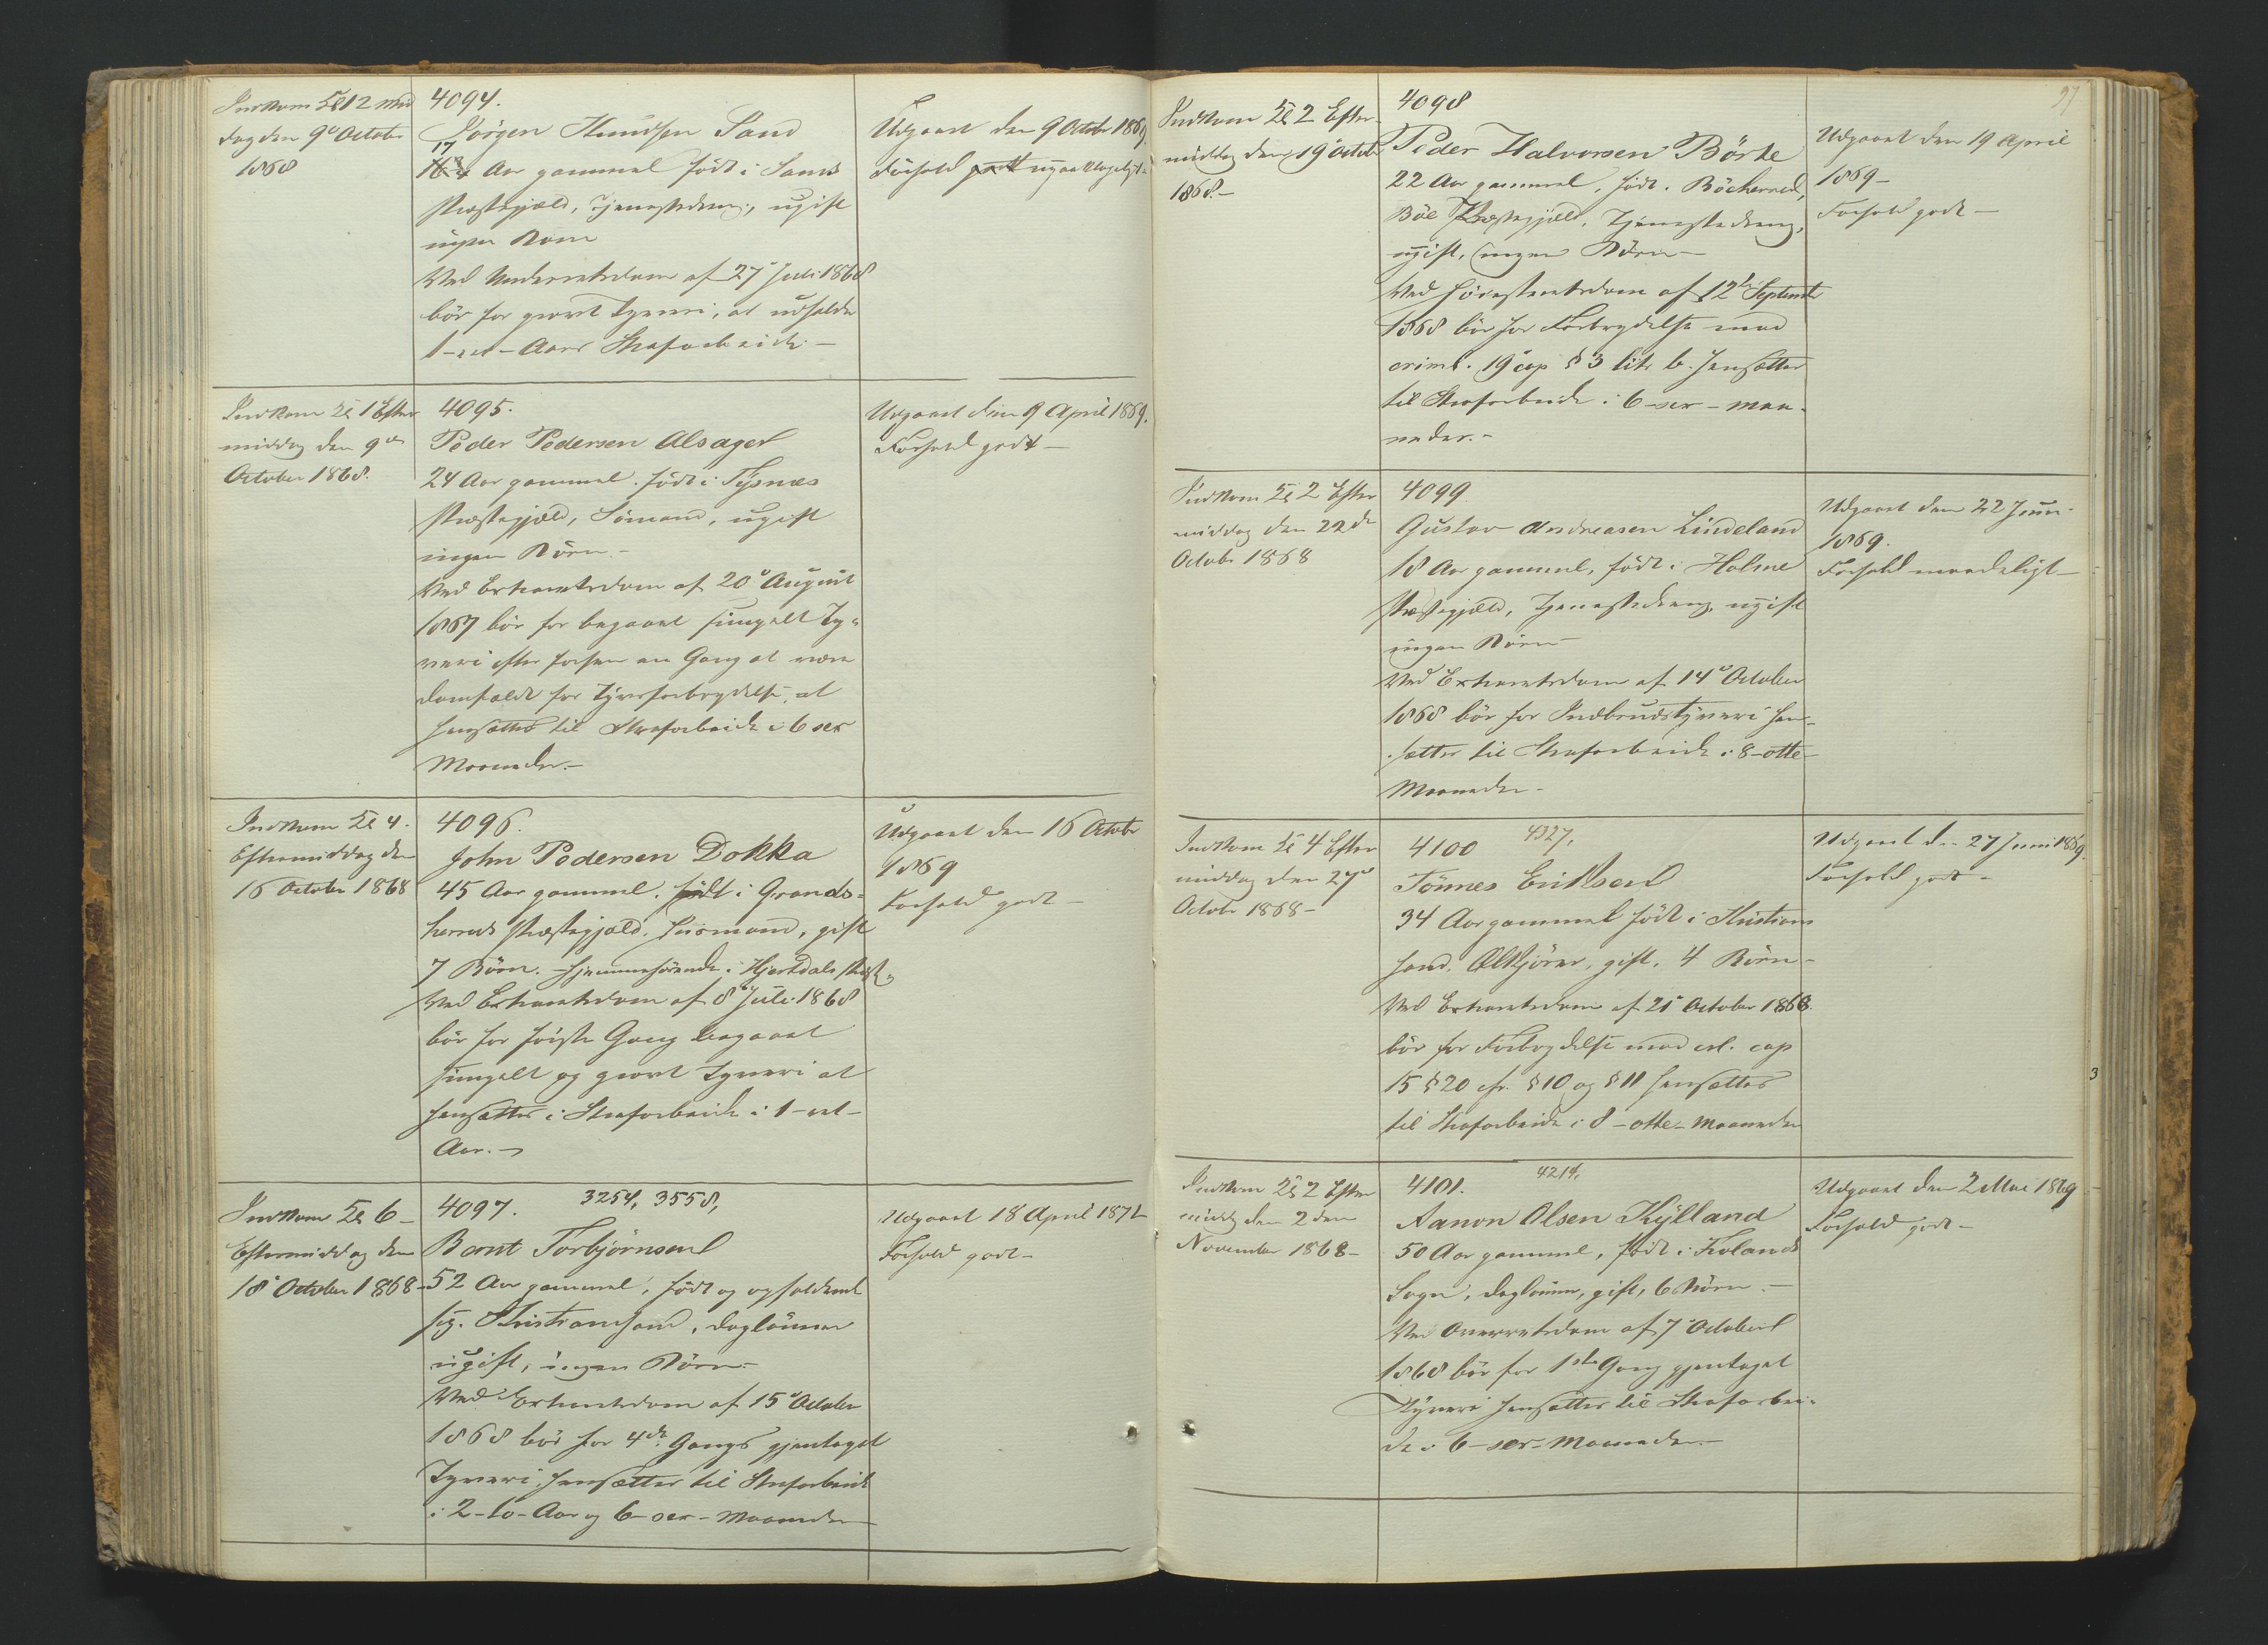 Indkom Kl 12 Mid
dag den 9de October
1868
4094.
Jörgen Knudsen Sand
17
Aar gammel født i Sands
Præstegjæld, Tjenestedreng, ugift
ingen Børn
Ved Underretsdom af 27 Juli 1868
bör for grovt Tyveri, at udholde
1-et-Aars Strafarbeide.-
Udgaaet den 9 Octobr 1869
Forhold upaaklageligt
Indkom Kl 1 Efter
middag den 9de
October 1868.
4095.
Peder Pedersen Alsager
24 Aar gammel. født i Tysnæs
Præstegjæld, Sömand, ugift
ingen Børn.-
Ved Extraretsdom af 20de August
1867 bör for begaaet simpelt Ty-
veri efter forhen en Gang at være
domfældt for Tyvsforbrydelse, at
hensættes til Strafarbeide i 6 sex
Maaneder.-
Udgaaet den 9 April 1869.
Forhold godt-
Indkom Kl 4.
Eftermiddag den
16 October 1868
4096.
John Pedersen Dokka
45 Aar gammel. født i Grands-
herreds Præstegjæld. Huusmand, gift
7 Börn. Hjemmehørende i Hjertdals Præst.
Ved Extraretsdom af 8de Juli 1868
bör for förste Gang begaaet
simpelt og grovt Tyveri at
hensættes i Strafarbeide i 1-et-
Aar.-
Udgaaet den 16 Octobr
1869
Forhold godt-
Indkom Kl 6-
Eftermiddag den
18de October 1868-
4097. 3254, 3558,
Bernt Torbjörnsen
52 Aar gammel, født og opholdende
sig. Kristiansand, Daglönner
ugift, ingen Börn.-
Ved Extraretsdom af 15de October
1868 bör for 4de Gangs gjentaget
Tyveri hensættes til Strafarbeide
i 2-to-Aar og 6-sex-Maaneder
Udgaaet 18 April 1871
Forhold godt-
97
Indkom Kl 2 Efter-
middag den 19 Octobr
1868.-
4098
Peder Halvorsen Börte
22 Aar gammel, født. Böcherred,
Böe Præstegjæld. Tjenestedreng,
ugift, ingen Börn-
Ved Höiesteretsdom af 12te September
1868 bör for Forbrydelse mod
criml. 19 cap § 3 litr b. hensættes
til Strafarbeide i 6-sex-Maa-
neder.-
Udgaaet den 19 April
1869-
Forhold godt-
Indkom Kl 2 Efter
middag den 22de
Octobr 1868
4099
Gustav Andreasen Lindeland
18 Aar gammel, födt i Holme
Præstegjæld, Tjenestedreng, ugift
ingen Börn-
Ved Extraretsdom af 14de October
1868 bör for Indbrudstyveri hen-
sættes til Strafarbeide i 8-otte-
Maaneder-
Udgaaet den 22 Juni
1869.
Forhold maadeligt-
Indkom Kl 4 Efter
middag den 27de
Octobr 1868-
4100 4327,
Tönnes Eriksen
34 Aar gammel født i Kristians
sand. gift, 4 Börn-
Ved Extraretsdom af 21de October 1868.
bör for Forbrydelse mod crl. cap
15 § 20 cfr. § 10 og § 11 hensættes
til Strafarbeide i 8-otte-Maaneder
Udgaaet den 27 Juni 1869.
Forhold godt-
3
Indkom Kl 2 Efter
middag den 2den
November 1868-
4101. 4214,
Aanon Olsen Kylland
50 Aar gammel, født i Frolands
Sogn, Daglönner, gift, 6 Börn.-
Ved Overretsdom af 7de October
1868 bör for 1ste Gang gjentaget
Tyveri hensættes til Strafarbei-
de i 6-sex-Maaneder.-
Udgaaet den 2 Mai 1869
Forhold godt-